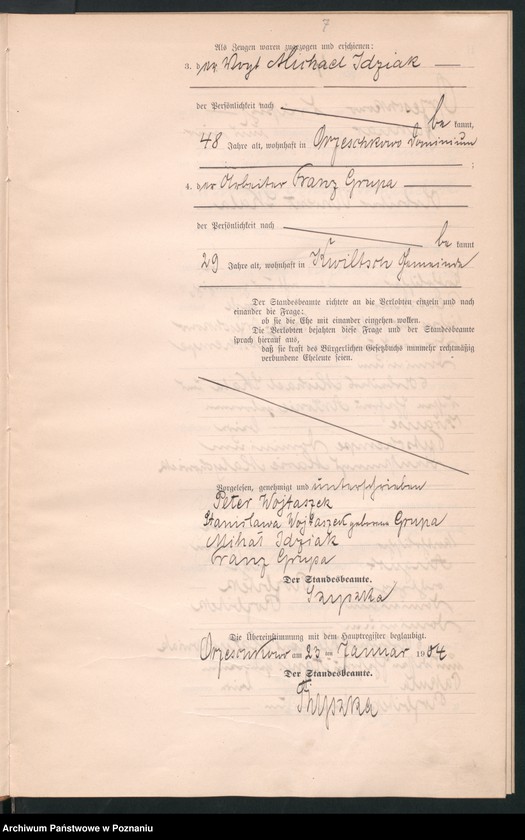 7
Als Zeugen waren zugezogen und erschienen:
3. der Vogt Michael Idziak
der Persönlichkeit nach
be kannt,
48 Jahre alt, wohnhaft in Orzeschkowo Dominium
;
4. der Arbeiter Franz Grupa
der Persönlichkeit nach
be kannt
29 Jahre alt, wohnhaft in Kwiltsch Gemeinde
.
Der Standesbeamte richtete an die Verlobten einzeln und nach
einander die Frage:
ob sie die Ehe mit einander eingehen wollen.
Die Verlobten bejahten diese Frage und der Standesbeamte
sprach hierauf aus,
daß sie kraft des Bürgerlichen Gesetzbuchs nunmehr rechtmäßig
verbundene Eheleute seien.
Vorgelesen, genehmigt und unterschrieben
Peter Wojtaszek
Stanislawa Wojtaszek geborene Grupa
Michał Idziak
Franz Grupa
Der Standesbeamte.
Die Übereinstimmung mit dem Hauptregister beglaubigt.
Orzeschkowo am 23 ten Januar 1904
Der Standesbeamte.
Archiwum Państwowe w Poznaniu